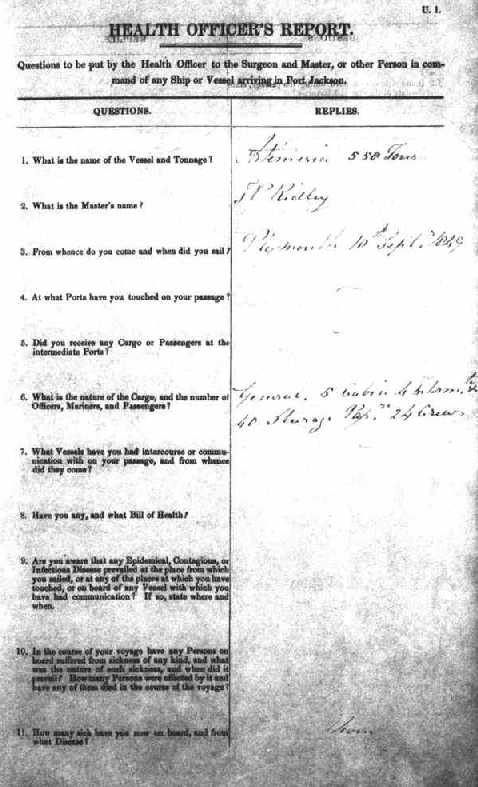 U. 1.
HEALTH OFFICER'S REPORT.
Questions to be put by the Health Officer to the Surgeon and Master, or other Person in com-
mand of any Ship or Vessel arriving in Port Jackson.
QUESTIONS. REPLIES.
1. What is the name of the Vessel and Tonnage? 550 Tons
2. What is the Master's name? Ridley
3. From whence do you come and when did you sail? Plymouth 10th Septr. 1849
4. At what Ports have you touched on your passage?
5. Did you receive any Cargo or Passengers at the
intermediate Ports?
6. What is the nature of the Cargo, and the number of General. 5 Cabin
Officers, Mariners, and Passengers? 40 Steerage 24 Crew
7. What Vessels have you had intercourse or commu-
nication with on your passage, and from whence
did they come?
8. Have you any, and what Bill of Health?
9. Are you aware that any Epidemical, Contagious, or
Infectious Disease prevailed at the place from which
you sailed, or at any of the places at which you have
touched, or on board of any Vessel with which you
have had communication? If so, state where and
when.
10. In the course of your voyage have any Persons on
board suffered from sickness of any kind, and what
was the nature of such sickness, and when did it
prevail? How many Persons were affected by it and
have any of them died in the course of the voyage?
11. How many sick have you now on board, and from
what Disease?